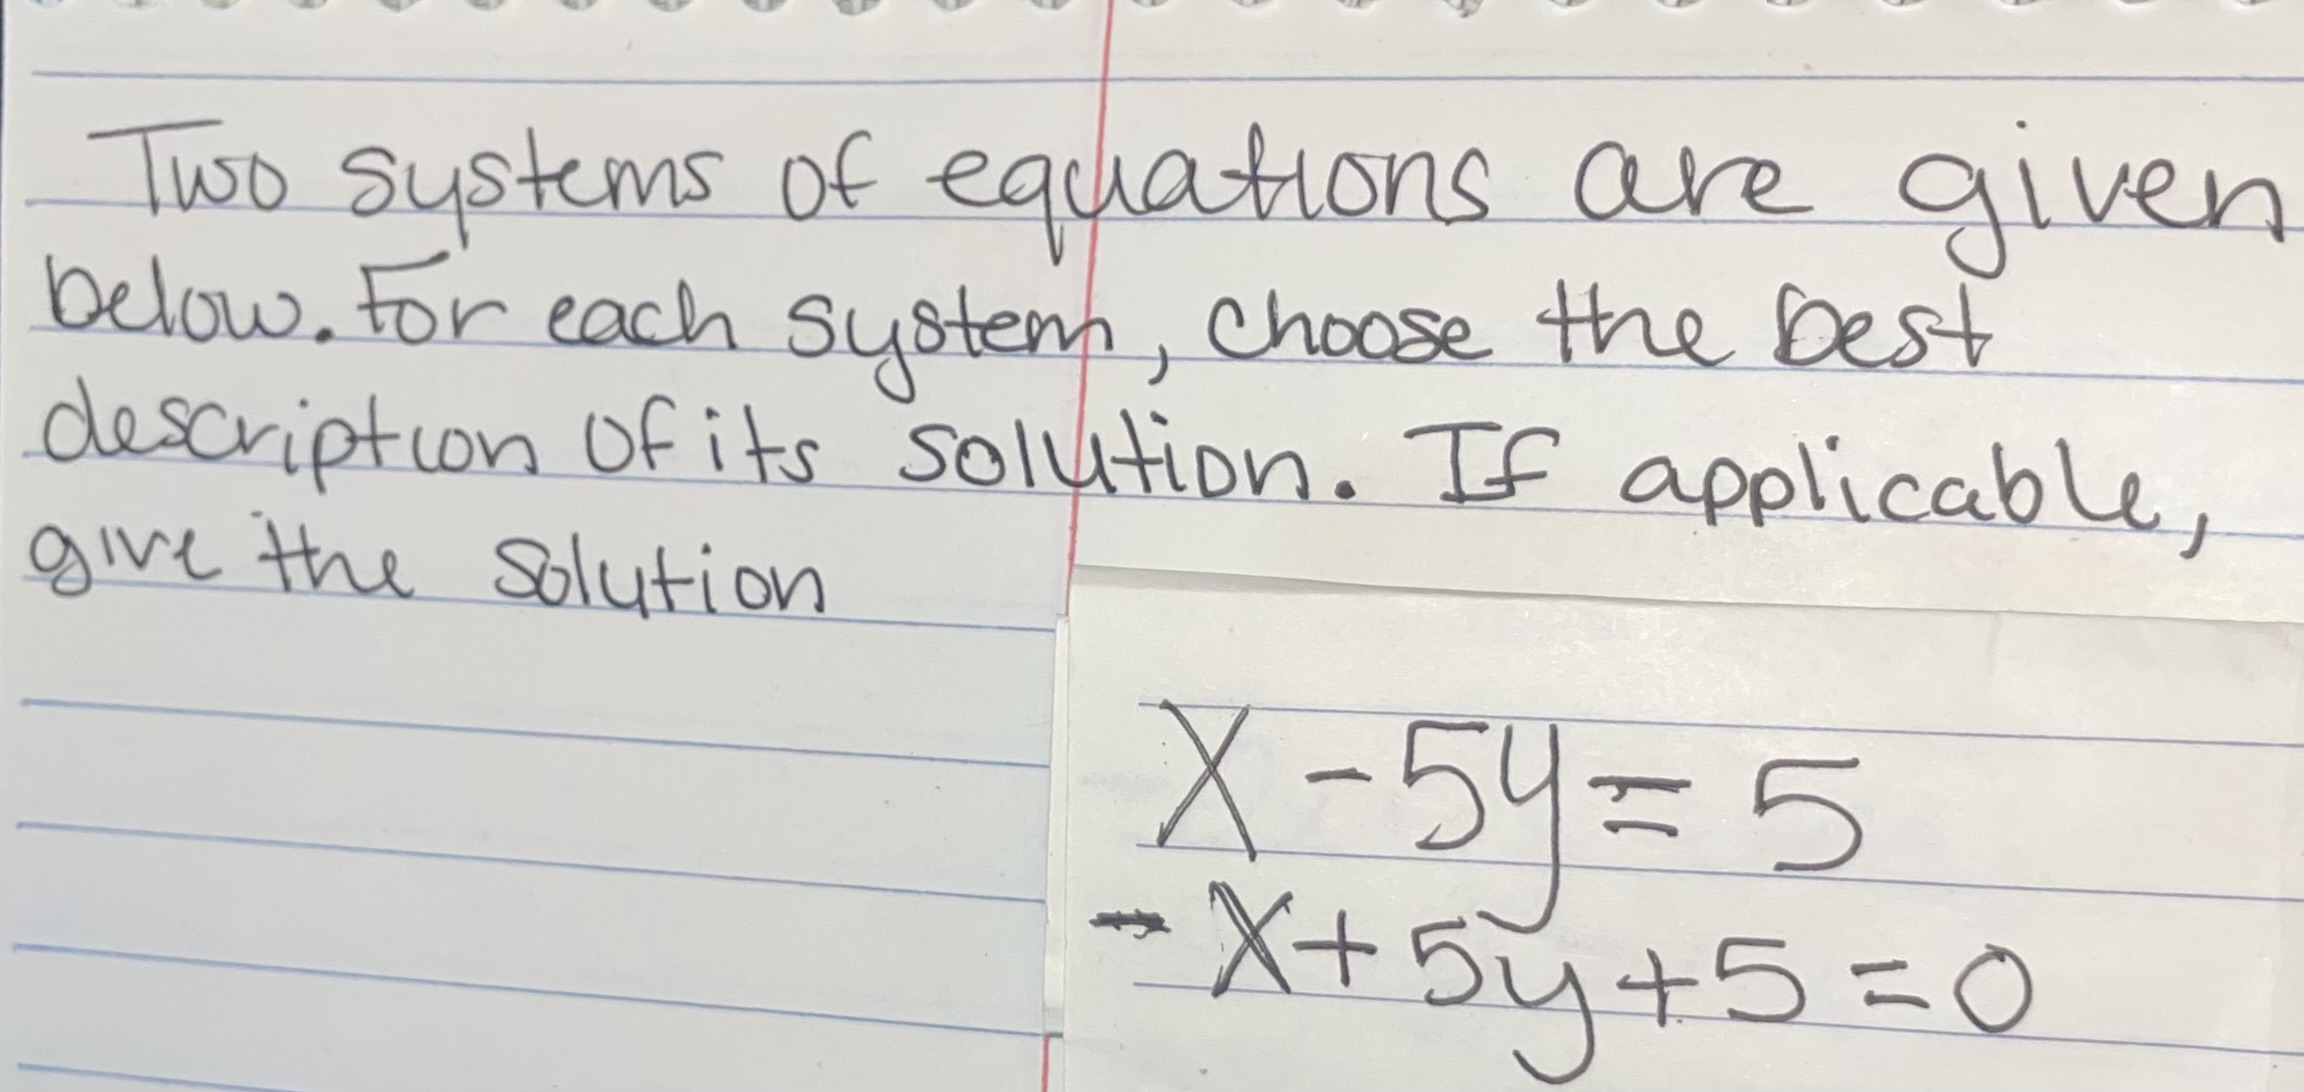 Two systems of equations are given
below. For each system, choose the best
description of its solution. If applicable,
give the solution
X - 5y = 5
- X + 5y + 5 = 0